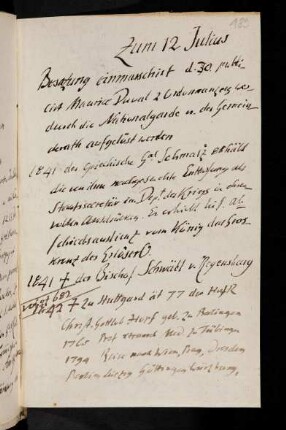 183
Zum 12 Julius
Besatzung einmarschirt d. 30 publi
cirt Maurice Duval 2 Ordonnanzen wo
durch die Nationalgarde u. der Gemein
derath aufgelöst werden
1841 der griechische Gal Schmalz erhält
die von ihm nachgesuchte Entlassung als
Staatssecretär im Dept. des Kriegs in ehren
vollen Ausdrücken. Er erhielt bei s. Ab
schiedsaudienz vom König das Gros
kreuz des Erlösers O.
1841 † der Bischof Schwäbl v. Regensburg
1842 † zu Stuttgard ät 77 der
Christ. Gottlob Hopf geb. zu Balingen
1765 Prof. Med. zu Tübingen
1794 Reise nach Wien, Prag, Dresden
Berlin Leipzig Göttingen Würzburg,